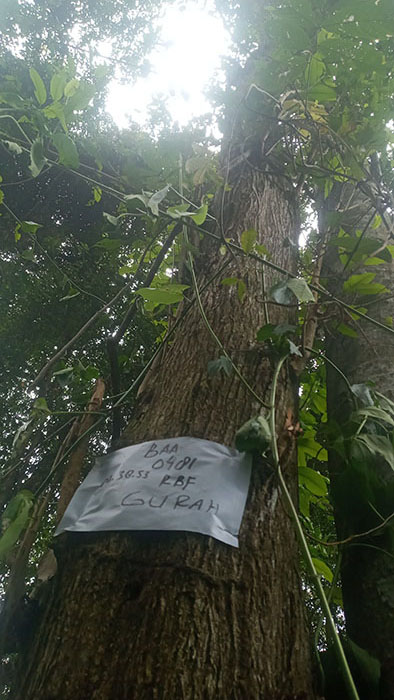 BAA
0481
38.53 RBF
GURAH